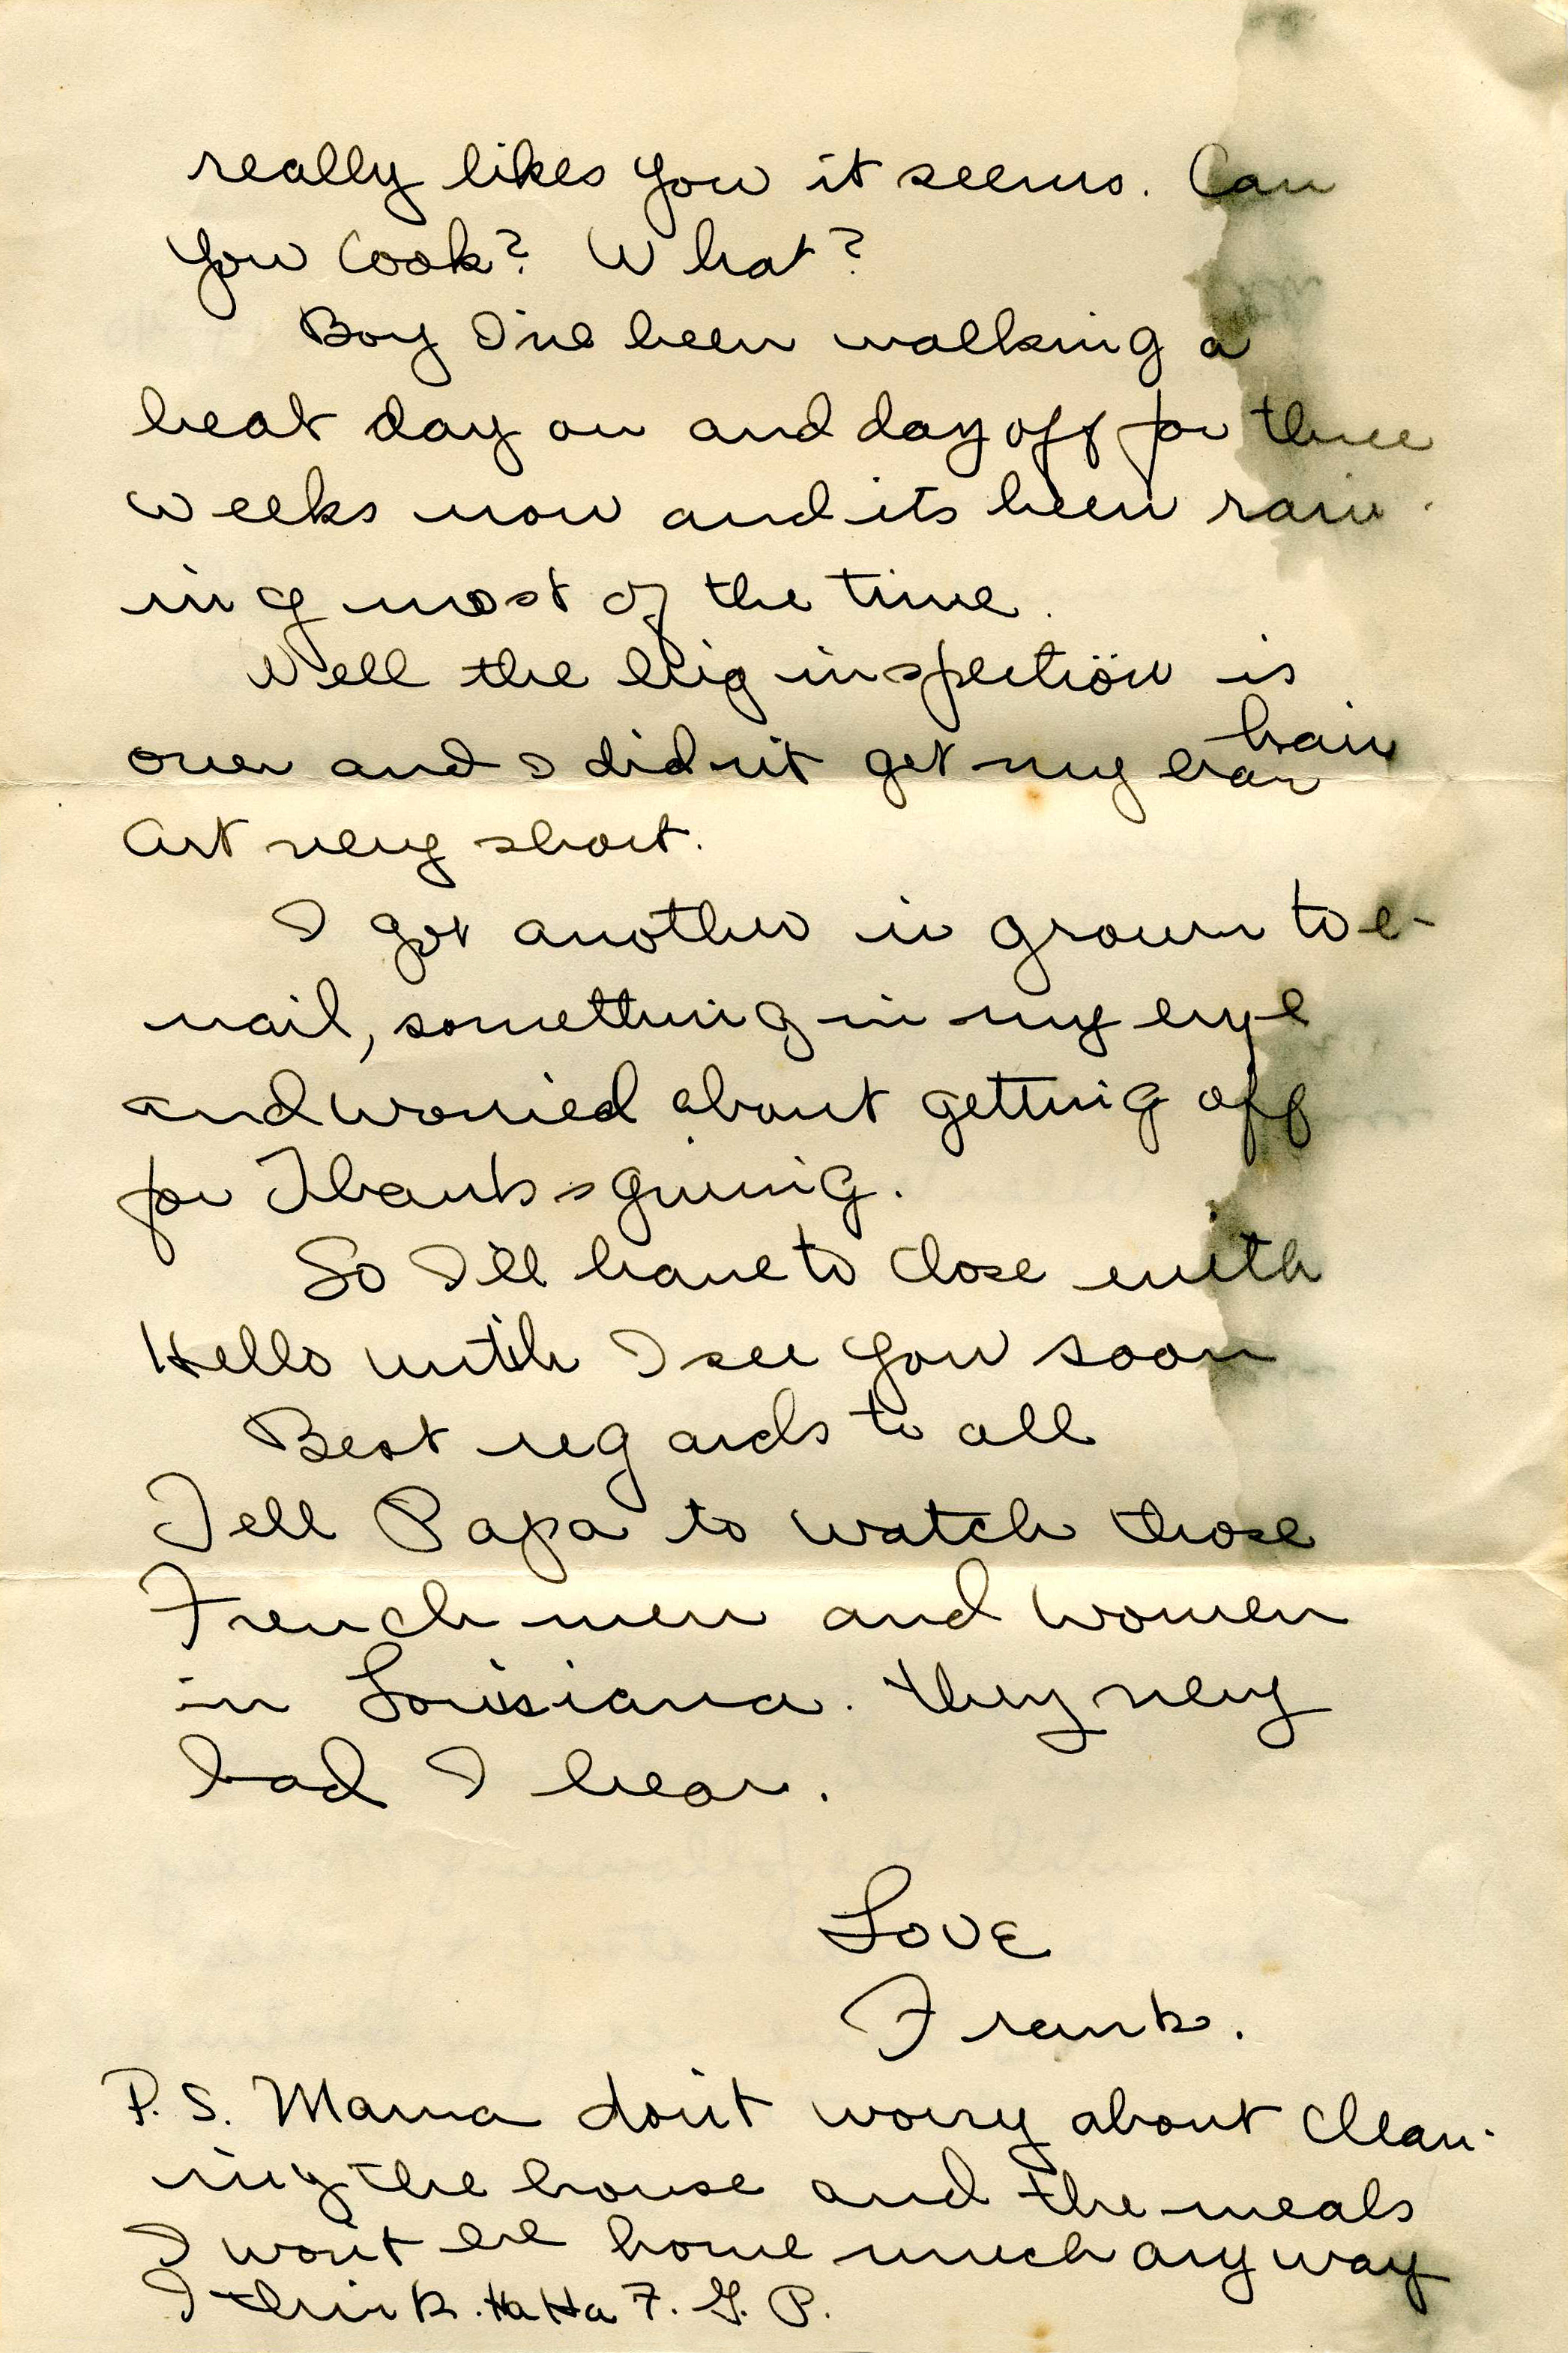 really likes you it seems. Can
you cook? What?
Boy I've been walking a
beat day on and day off for three
weeks now and its been rain-
ing most of the time.
Well the big inspection is
over and I didn't get my ear hair
cut very short.
I got another in grown toe-
nail, something in my eye
and worried about getting off
for Thanksgiving.
So I'll have to close with
Hello until I see you soon
Best regards to all
Tell Papa to watch those
French men and women
in Louisiana. they very
bad I hear.
Love
Frank.
P.S. Mama don't worry about clean-
ing the house and the meals
I won't be home much any way
I think. Ha Ha F. G. P.